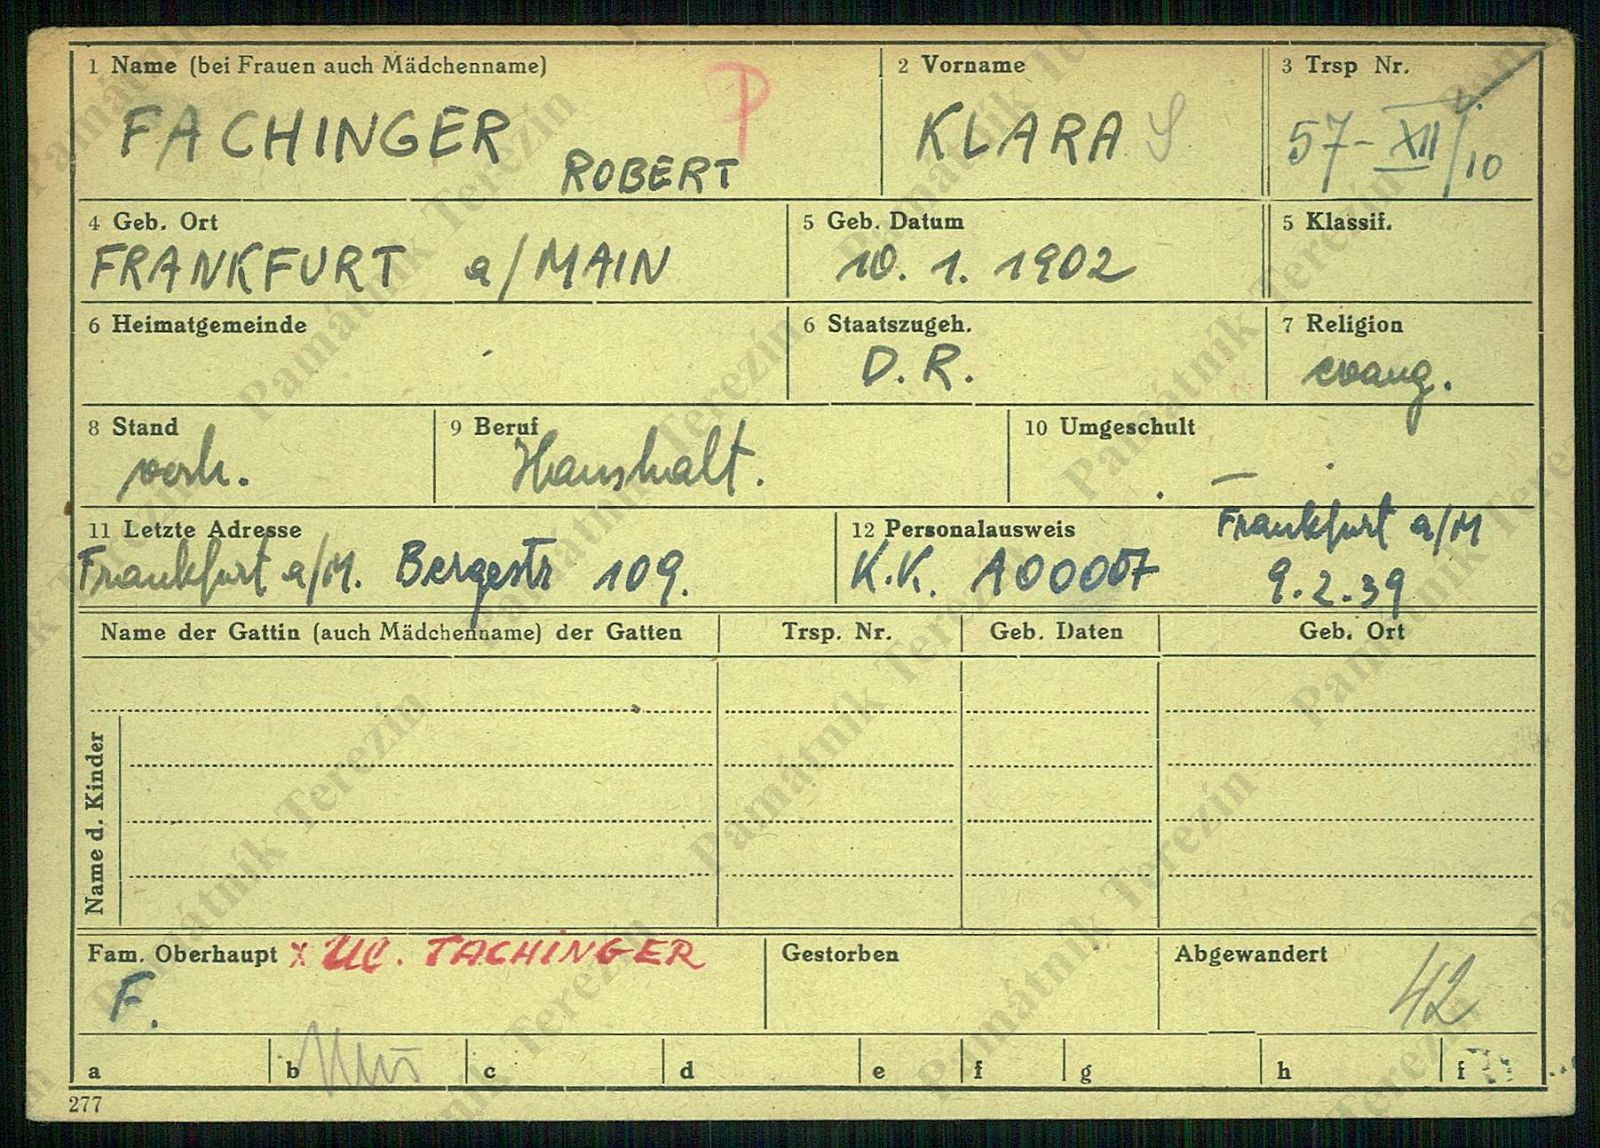 1 Name (bei Frauen auch Mädchenname)
FACHINGER P
ROBERT
2 Vorname
KLARA S
3 Trsp Nr.
57-XII/10
4 Geb. Ort
FRANKFURT a/MAIN
5 Geb. Datum
10. 1. 1902
5 Klassif.
6 Heimatgemeinde
6 Staatszugeh.
D.R.
7 Religion
evang.
8 Stand
verh.
9 Beruf
Haushalt.
10 Umgeschult
—
11 Letzte Adresse
Frankfurt a/M. Bergestr 109.
12 Personalausweis
K.K. A00007
Frankfurt a/M
9.2.39
Name der Gattin (auch Mädchenname) der Gatten
Trsp. Nr.
Geb. Daten
Geb. Ort
Name d. Kinder
Fam. Oberhaupt x TACHINGER
F.
Gestorben
Abgewandert
42
a b c d e f g h f
277
Památník Terezín